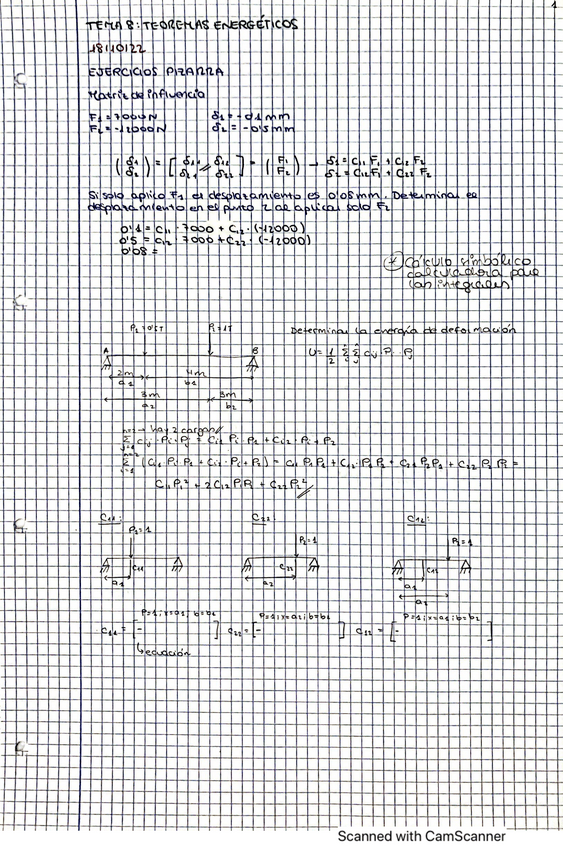 1
TEMA 8: TEOREMAS ENERGÉTICOS
18/10/22
EJERCICIOS PIZARRA
Matriz de influencia
F1 = 7000N δ1 = -0'1 mm
F2 = -12000N δ2 = -0'5 mm
(δ1 δ2) = [δ11 δ12 δ21 δ22] = (F1 F2) → δ1 = C11 F1 + C12 F2
δ2 = C12 F1 + C22 F2
Si solo aplico F1 el desplazamiento es 0'08mm. Determina el
desplazamiento en el punto 2 al aplicar solo F2
0'1 = C11 · 7000 + C12 · (-12000)
0'5 = C12 · 7000 + C22 · (-12000)
0'08 =
* Cálculo simbólico
calculadora para
las integrales
P1 = 0'5T P2 = 1T Determinar la energía de deformación
A B U = 1/2 Σ Σ cij · Pi · Pj
2m 4m
a1 b1
3m 3m
a2 b2
n=2 → hay 2 cargas//
Σ cij · Pi · Pj = Ci1 · Pi · P1 + Ci2 · Pi · P2
Σ (Ci1 · Pi · P1 + Ci2 · Pi · P2) = C11 P1 P1 + C12 · P1 P2 + C21 P2 P1 + C22 P2 P2 =
C11 P1² + 2 C12 P1 P2 + C22 P2²//
C11: C22: C12:
P1 = 1 P2 = 1 P2 = 1
C11 C22 C12
a1 a2 a1
a2
P=1; x=a1; b=b1 P=1; x=a2; b=b2 P=1; x=a1; b=b2
C11 = [- ] C22 = [- ] C12 = [- ]
↳ ecuación
Scanned with CamScanner